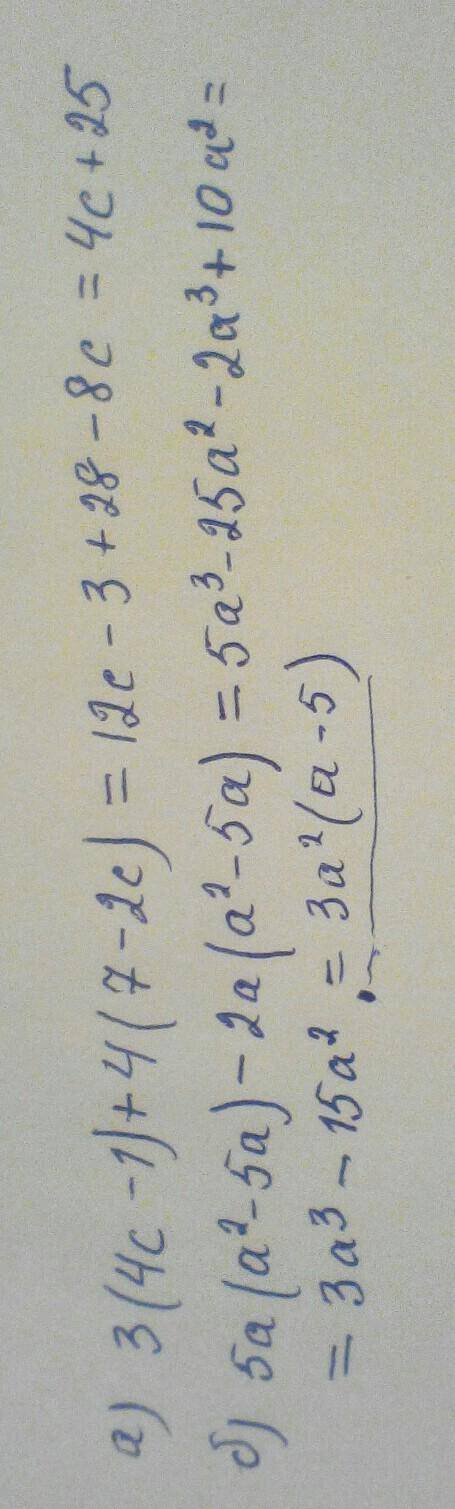 а) 3(4c-1)+4(7-2c)=12c-3+28-8c=4c+25
б) 5a(a²-5a)-2a(a²-5a)=5a³-25a²-2a³+10a²=
=3a³-15a²=3a²(a-5)